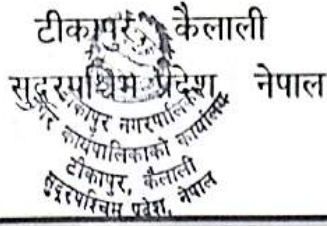 टीकापुर, कैलाली
सुदूरपश्चिम प्रदेश, नेपाल
टीकापुर नगरपालिका
नगर कार्यपालिकाको कार्यालय
टीकापुर, कैलाली
सुदूरपश्चिम प्रदेश, नेपाल